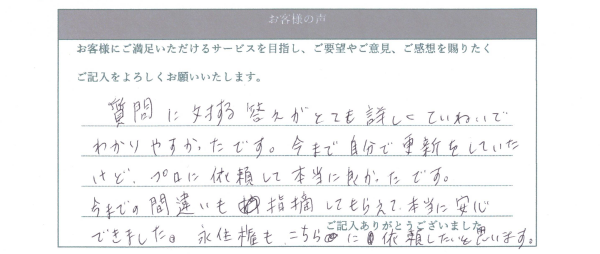 お客様の声
お客様にご満足いただけるサービスを目指し、ご要望やご意見、ご感想を賜りたく
ご記入をよろしくお願いいたします。
質問に対する答えがとても詳しくていねいで
わかりやすかったです。今まで自分で更新をしていた
けど、プロに依頼して本当に良かったです。
今までの間違いも指摘してもらえて本当に安心
ご記入ありがとうございました
できました。永住権も、こちらに依頼したいと思います。